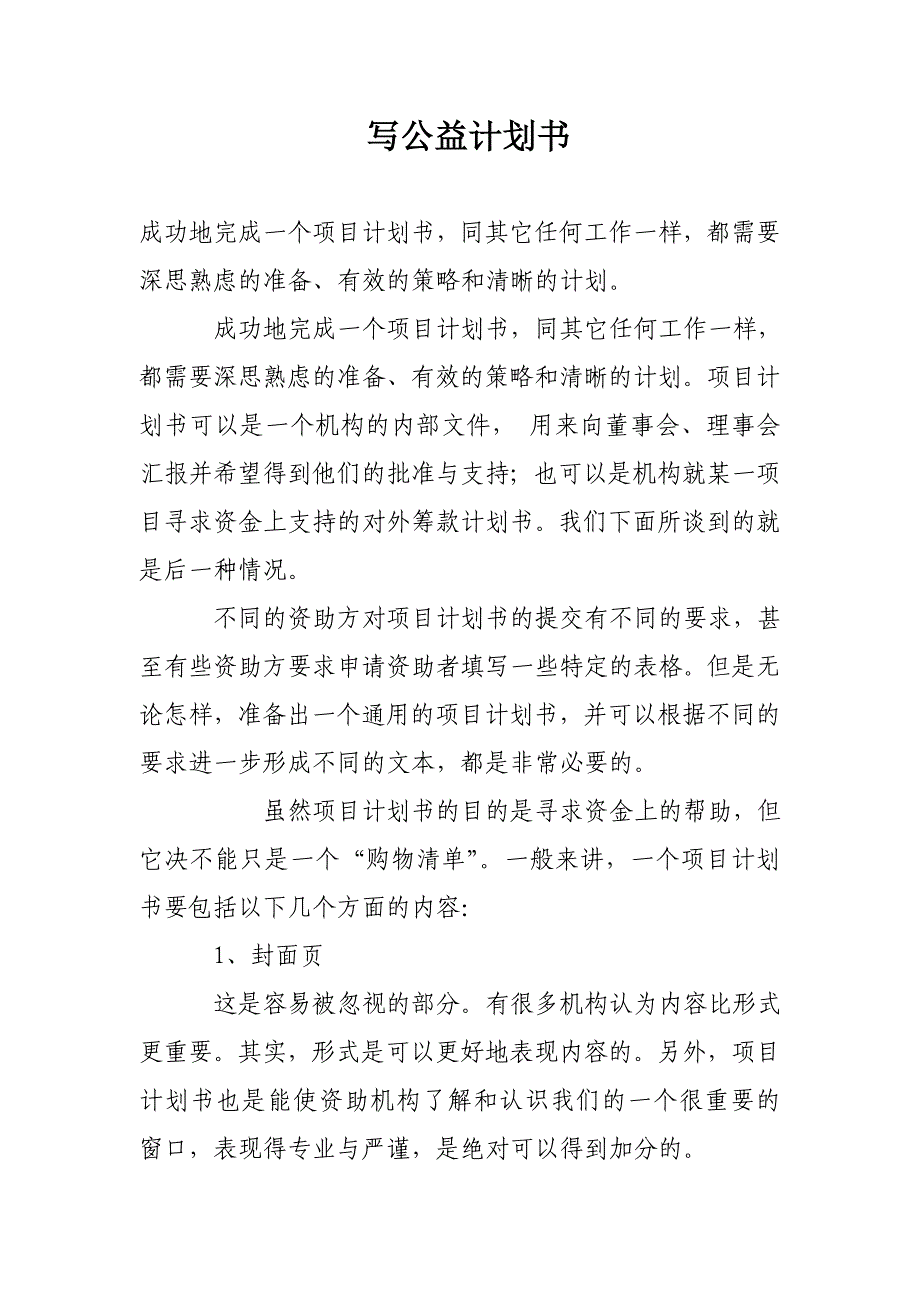 写公益计划书
成功地完成一个项目计划书，同其它任何工作一样，都需要
深思熟虑的准备、有效的策略和清晰的计划。
成功地完成一个项目计划书，同其它任何工作一样，
都需要深思熟虑的准备、有效的策略和清晰的计划。项目计
划书可以是一个机构的内部文件， 用来向董事会、理事会
汇报并希望得到他们的批准与支持；也可以是机构就某一项
目寻求资金上支持的对外筹款计划书。我们下面所谈到的就
是后一种情况。
不同的资助方对项目计划书的提交有不同的要求，甚
至有些资助方要求申请资助者填写一些特定的表格。但是无
论怎样，准备出一个通用的项目计划书，并可以根据不同的
要求进一步形成不同的文本，都是非常必要的。
虽然项目计划书的目的是寻求资金上的帮助，但
它决不能只是一个“购物清单”。一般来讲，一个项目计划
书要包括以下几个方面的内容：
1、封面页
这是容易被忽视的部分。有很多机构认为内容比形式
更重要。其实，形式是可以更好地表现内容的。另外，项目
计划书也是能使资助机构了解和认识我们的一个很重要的
窗口，表现得专业与严谨，是绝对可以得到加分的。